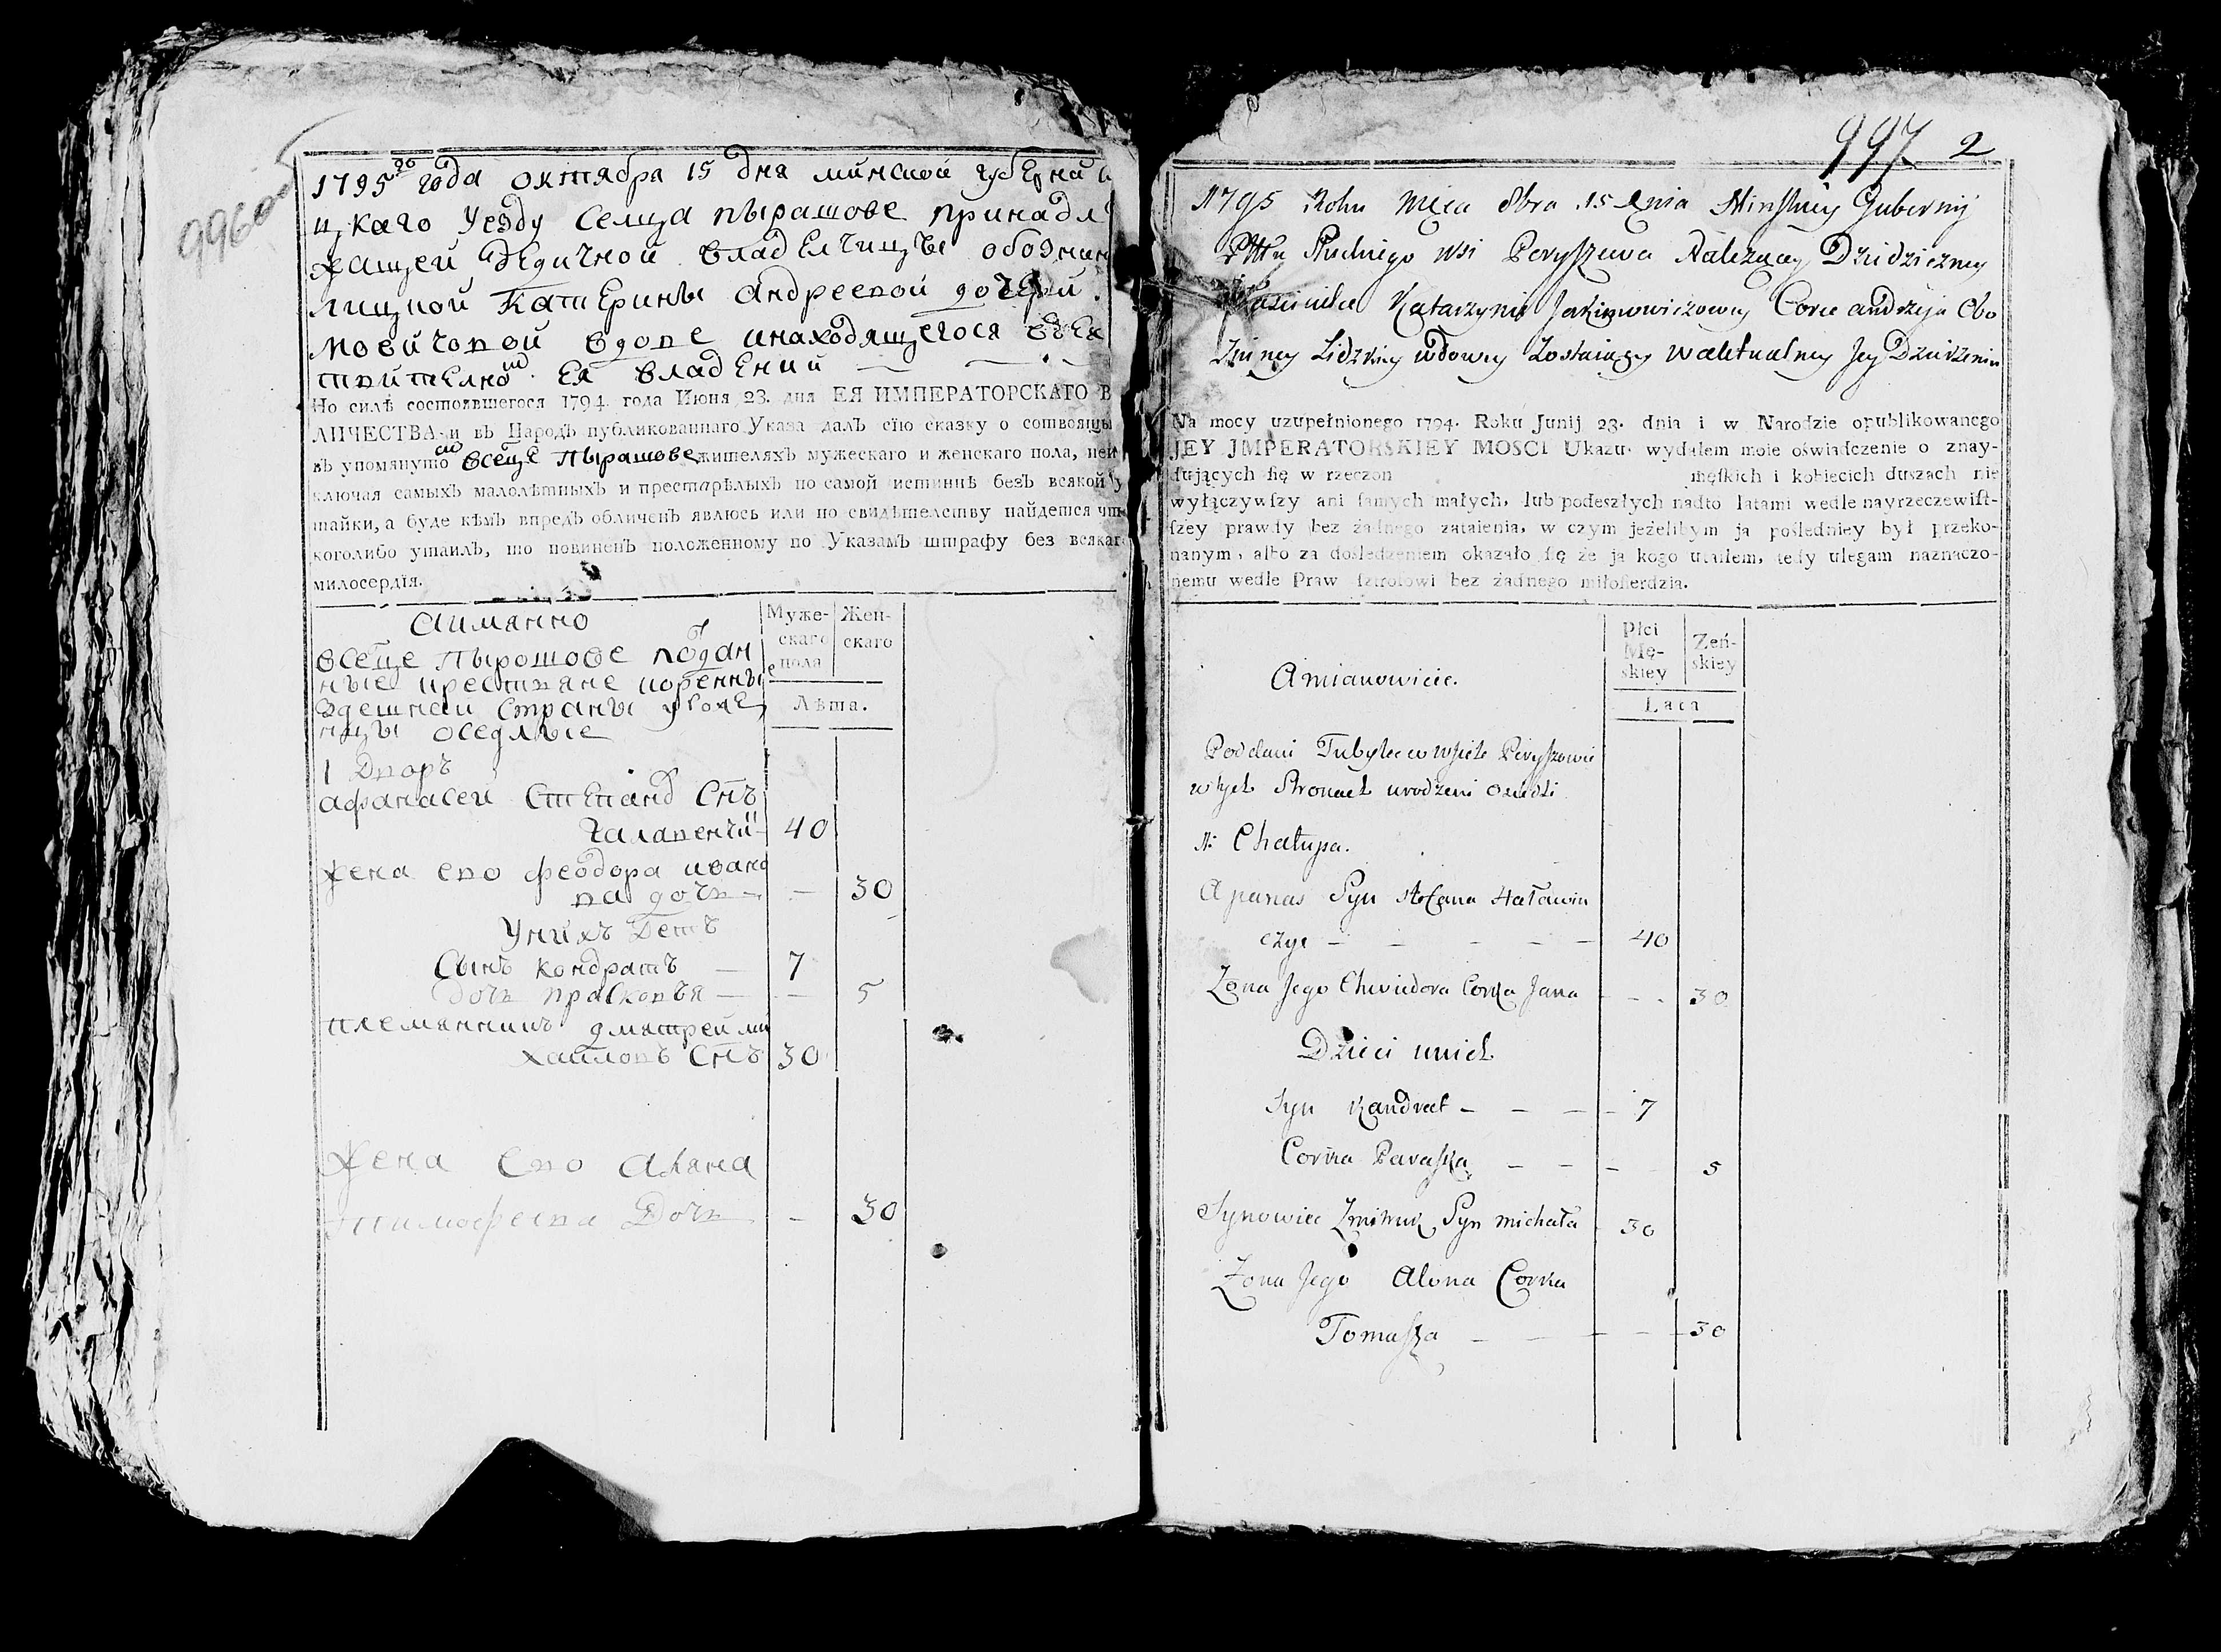 996об
1795го года октября 15 дня минской губернии
цкаго уезду селца пырашове принадл
жащей дедичной владелчицы обознин
лицкой Катерины андреевой дочери
мовичовой вдове инаходящегося въ ея
ея владении
По силѣ состоявшегося 1794 года Июня 23. дня ЕЯ ИМПЕРАТОРСКАГО В
ЛИЧЕСТВА и въ Народъ публикованнаго Указа далъ сїю сказку о сотвоящы
въ упомянутом всеце пырашове жителяхъ мужескаго и женскаго пола, неи
ключая самыхъ малолѣтныхъ и престарѣлыхъ по самой истиннѣ безъ всякой у
тайки, а буде кѣмъ впредъ обличенъ явлюсь или по свидѣтелству найдется чт
коголибо утаилъ, то повиненъ положенному по Указамъ штрафу без всякаг
милосердїя.
Аимянно
Муже-
скаго
поля
Жен-
скаго
Лѣта.
всеце пырошове подан
ные крестяне коренны
здешнеи страны уроже
нцы оседлые
1 Дворъ
афанасеи степанов снъ
галавенчиц 40
жена ево феодора ивано
ва дочь — — 30
Унихъ Дети
Сынъ кондратъ — 7
дочь прасковъя — — 5
племянникъ дматреи ми
хаиловъ снъ 30
жена ево алена
тимофеева Дочь — 30
997 2
1795 Roku Mca 8bra 15 dnia Minskiey Guberniy
Pttu Słuckiego Wsi Peryszewa Należącey Dziedziczney
Katarzynie Jakimowiczowey Corce andrzeja Obo
Lidzkiey wdowy Zostaiącey waktualney Jey Dzierżeniu
Na mocy uzupełnionego 1794. Roku Junij 23. dnia i w Narodzie opublikowanego
JEY JMPERATORSKIEY MOSCI Ukazu. wydałem moie oświadczenie o znay-
dujących się w rzeczon męſkich i kobiecich duszach nie
wyłączywſzy ani ſamych małych, lub podeszłych nadto latami wedle nayrzeczewiſt-
ſzey prawdy bez żadnego zataienia, w czym jeżelibym ja poſledniey był przeko-
nanym, albo za doſledzeniem okazało ſię że ja kogo utaiłem, tedy ulegam naznaczo-
nemu wedle Praw ſztrofowi bez żadnego miłoſierdzia.
Amianowicie.
Płci
Mę-
skiey
Żeń-
skiey
Lata
Poddani Tubylce w wsiele Peryszowie
wtych Stronach urodzeni Osiedli
N: Chałupa.
Apanas Syn Stefana Hałowin
czyc — — — — — 40
Zona Jego Chwiedora Corka Jana - - - 30
Dzieci unich
Syn Kandrat — — — - 7
Corka Paraska — — — 5
Synowiec Zmitruk Syn michała 30
Zona Jego Alona Corka
Tomasza — — — — 30